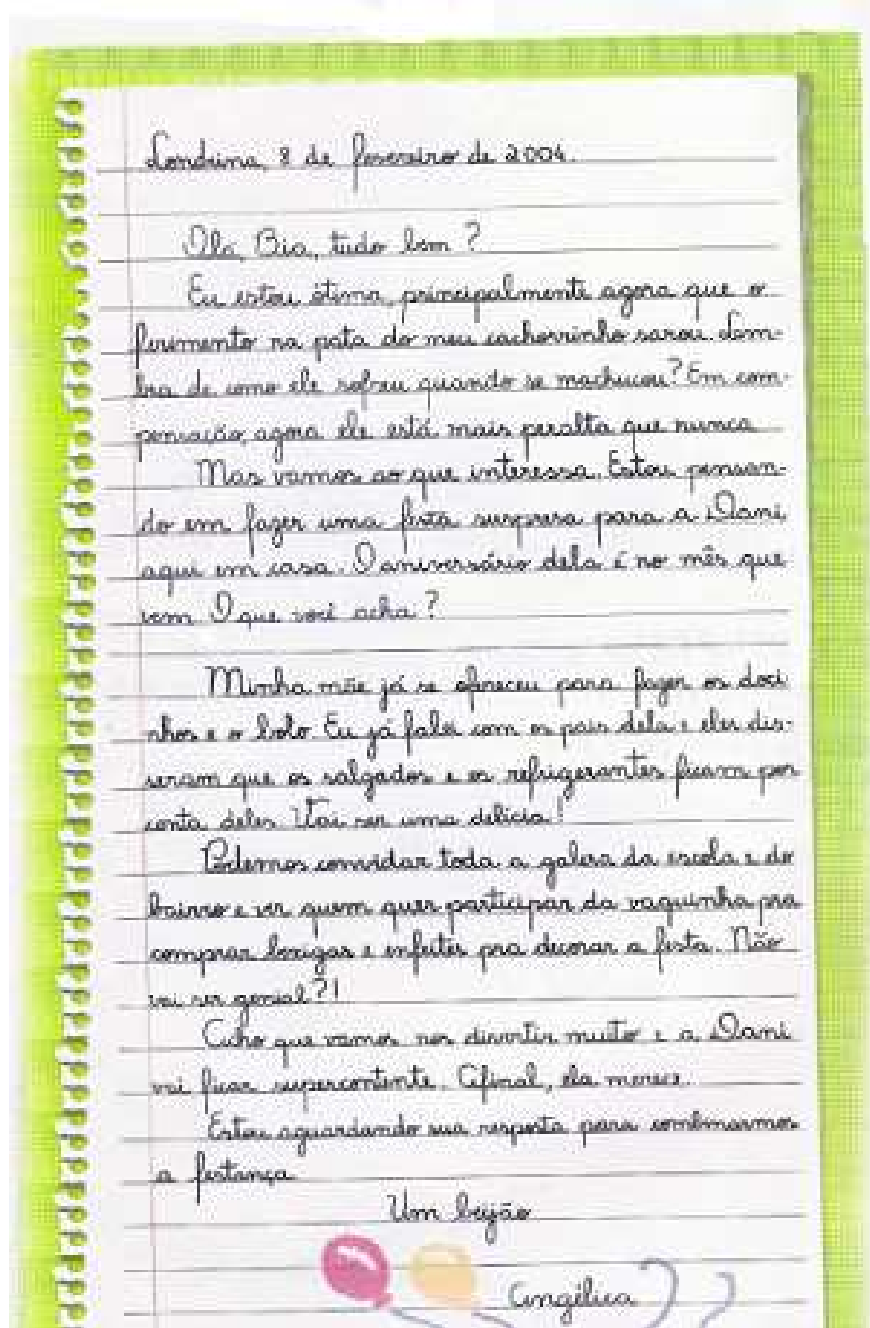 Londrina, 8 de fevereiro de 2004.
Olá, Bia, tudo bem?
Eu estou ótima, principalmente agora que o
ferimento na pata do meu cachorrinho sarou. Lem-
bra de como ele sofreu quando se machucou? Em com-
pensação, agora ele está mais peralta que nunca.
Mas vamos ao que interessa. Estou pensan-
do em fazer uma festa surpresa para a Dani
aqui em casa. O aniversário dela é no mês que
vem. O que você acha?
Minha mãe já se ofereceu para fazer os doci
nhos e o bolo. Eu já falei com os pais dela e eles dis-
seram que os salgados e os refrigerantes ficam por
conta deles. Vai ser uma delícia!
Podemos convidar toda a galera da escola e do
bairro e ver quem quer participar da vaquinha pra
comprar bexigas e enfeites pra decorar a festa. Não
vai ser genial?!
Acho que vamos nos divertir muito e a Dani
vai ficar supercontente. Afinal, ela merece.
Estou aguardando sua resposta para combinarmos
a festança.
Um beijão
Angélica